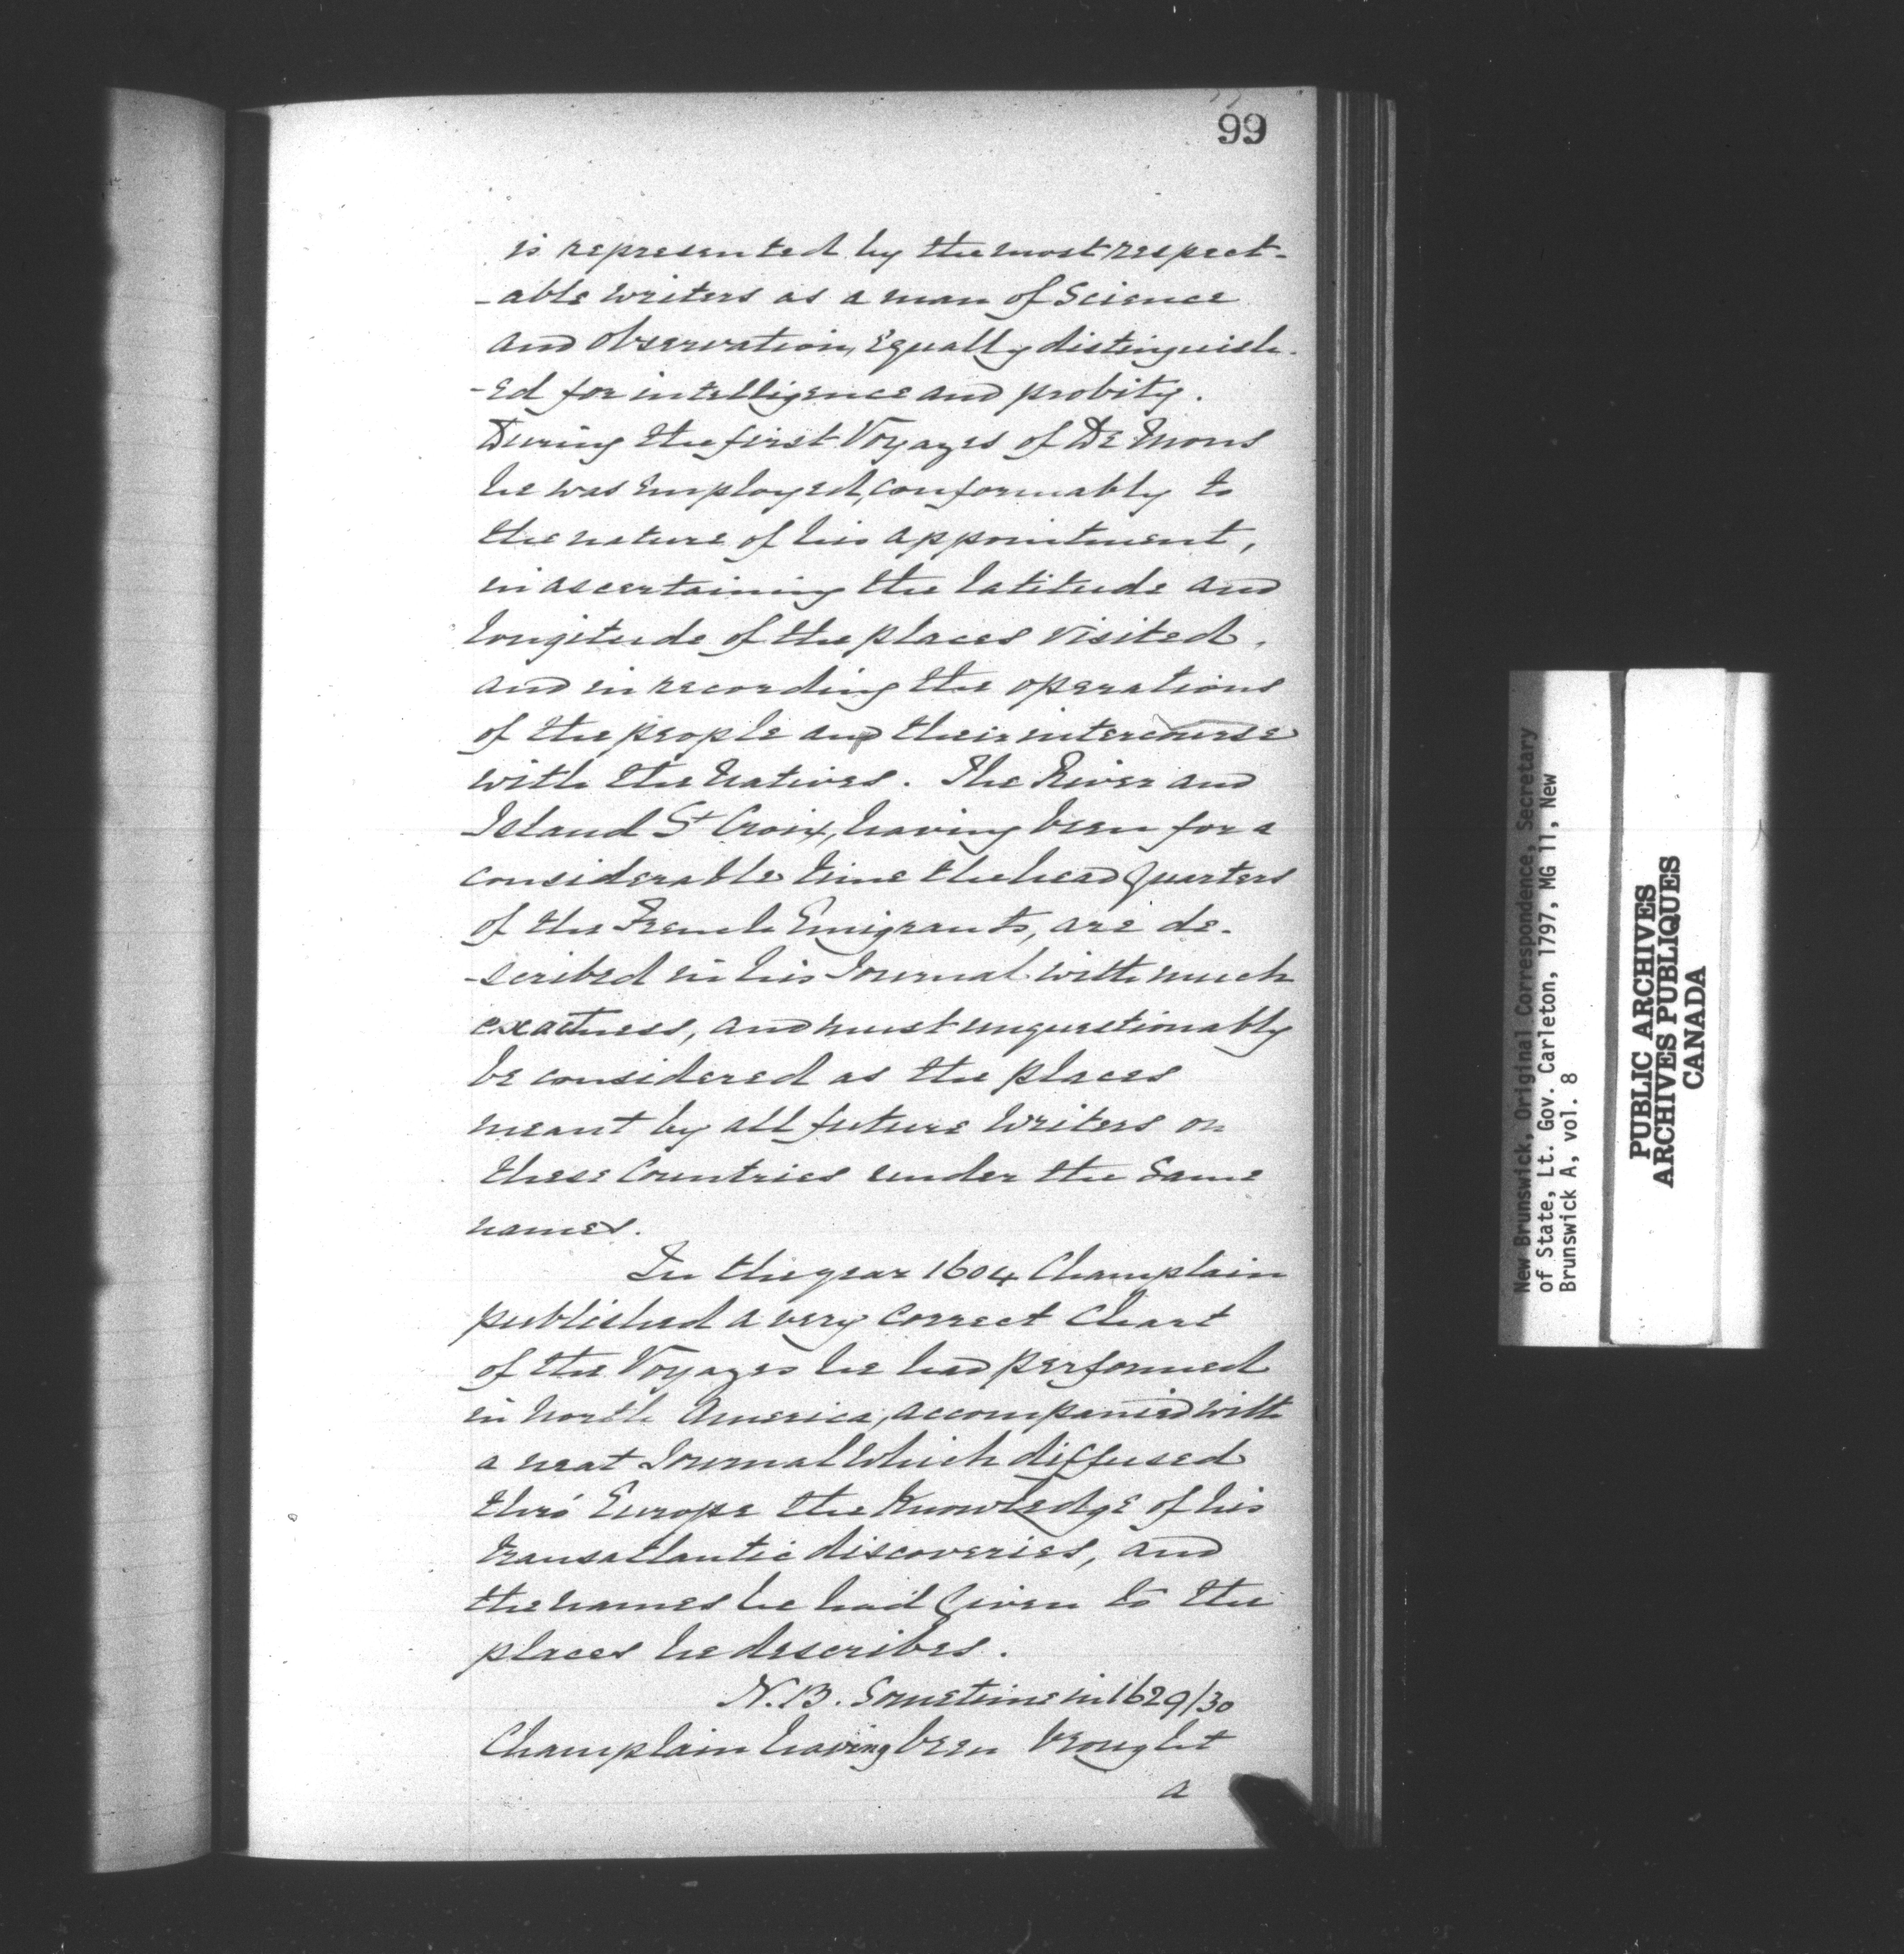 99
is represented by the most respect-
-able writers as a man of Science
and observation, Equally distinguish-
-ed for intelligence and probity.
During the first Voyages of De Mons
he was Employed, conformably to
the nature of his appointment,
in ascertaining the latitude and
longitude of the places visited,
and in recording the operations
of the people and their intercourse
with the Natives. The River and
Island St Croix, having been for a
considerable time the head Quarters
of the French Emigrants, are de-
-scribed in his Journal with much
exactness, and must unquestionably
be considered as the places
meant by all future writers on
these Countries under the Same
names.
In the year 1604 Champlain
published a very correct Chart
of the Voyages he had performed
in North America, accompanied with
a neat Journal which diffused
thro' Europe the Knowledge of his
transatlantic discoveries, and
the names he had Given to the
places he describes.
N.B. Sometime in 1629/30
Champlain having been brought
a
New Brunswick, Original Correspondence, Secretary
of State, Lt. Gov. Carleton, 1797, MG 11, New
Brunswick A, vol. 8
PUBLIC ARCHIVES
ARCHIVES PUBLIQUES
CANADA